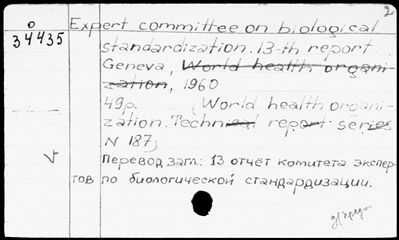 2
o Expert committee on biological
34435 standardization. 13-th report.
Geneva, World health organi-
zation, 1960
49p. (World health organi-
zation. Technical report series
N 187)
Перевод загл.: 13 отчёт комитета экспер-
тов по биологической стандартизации.